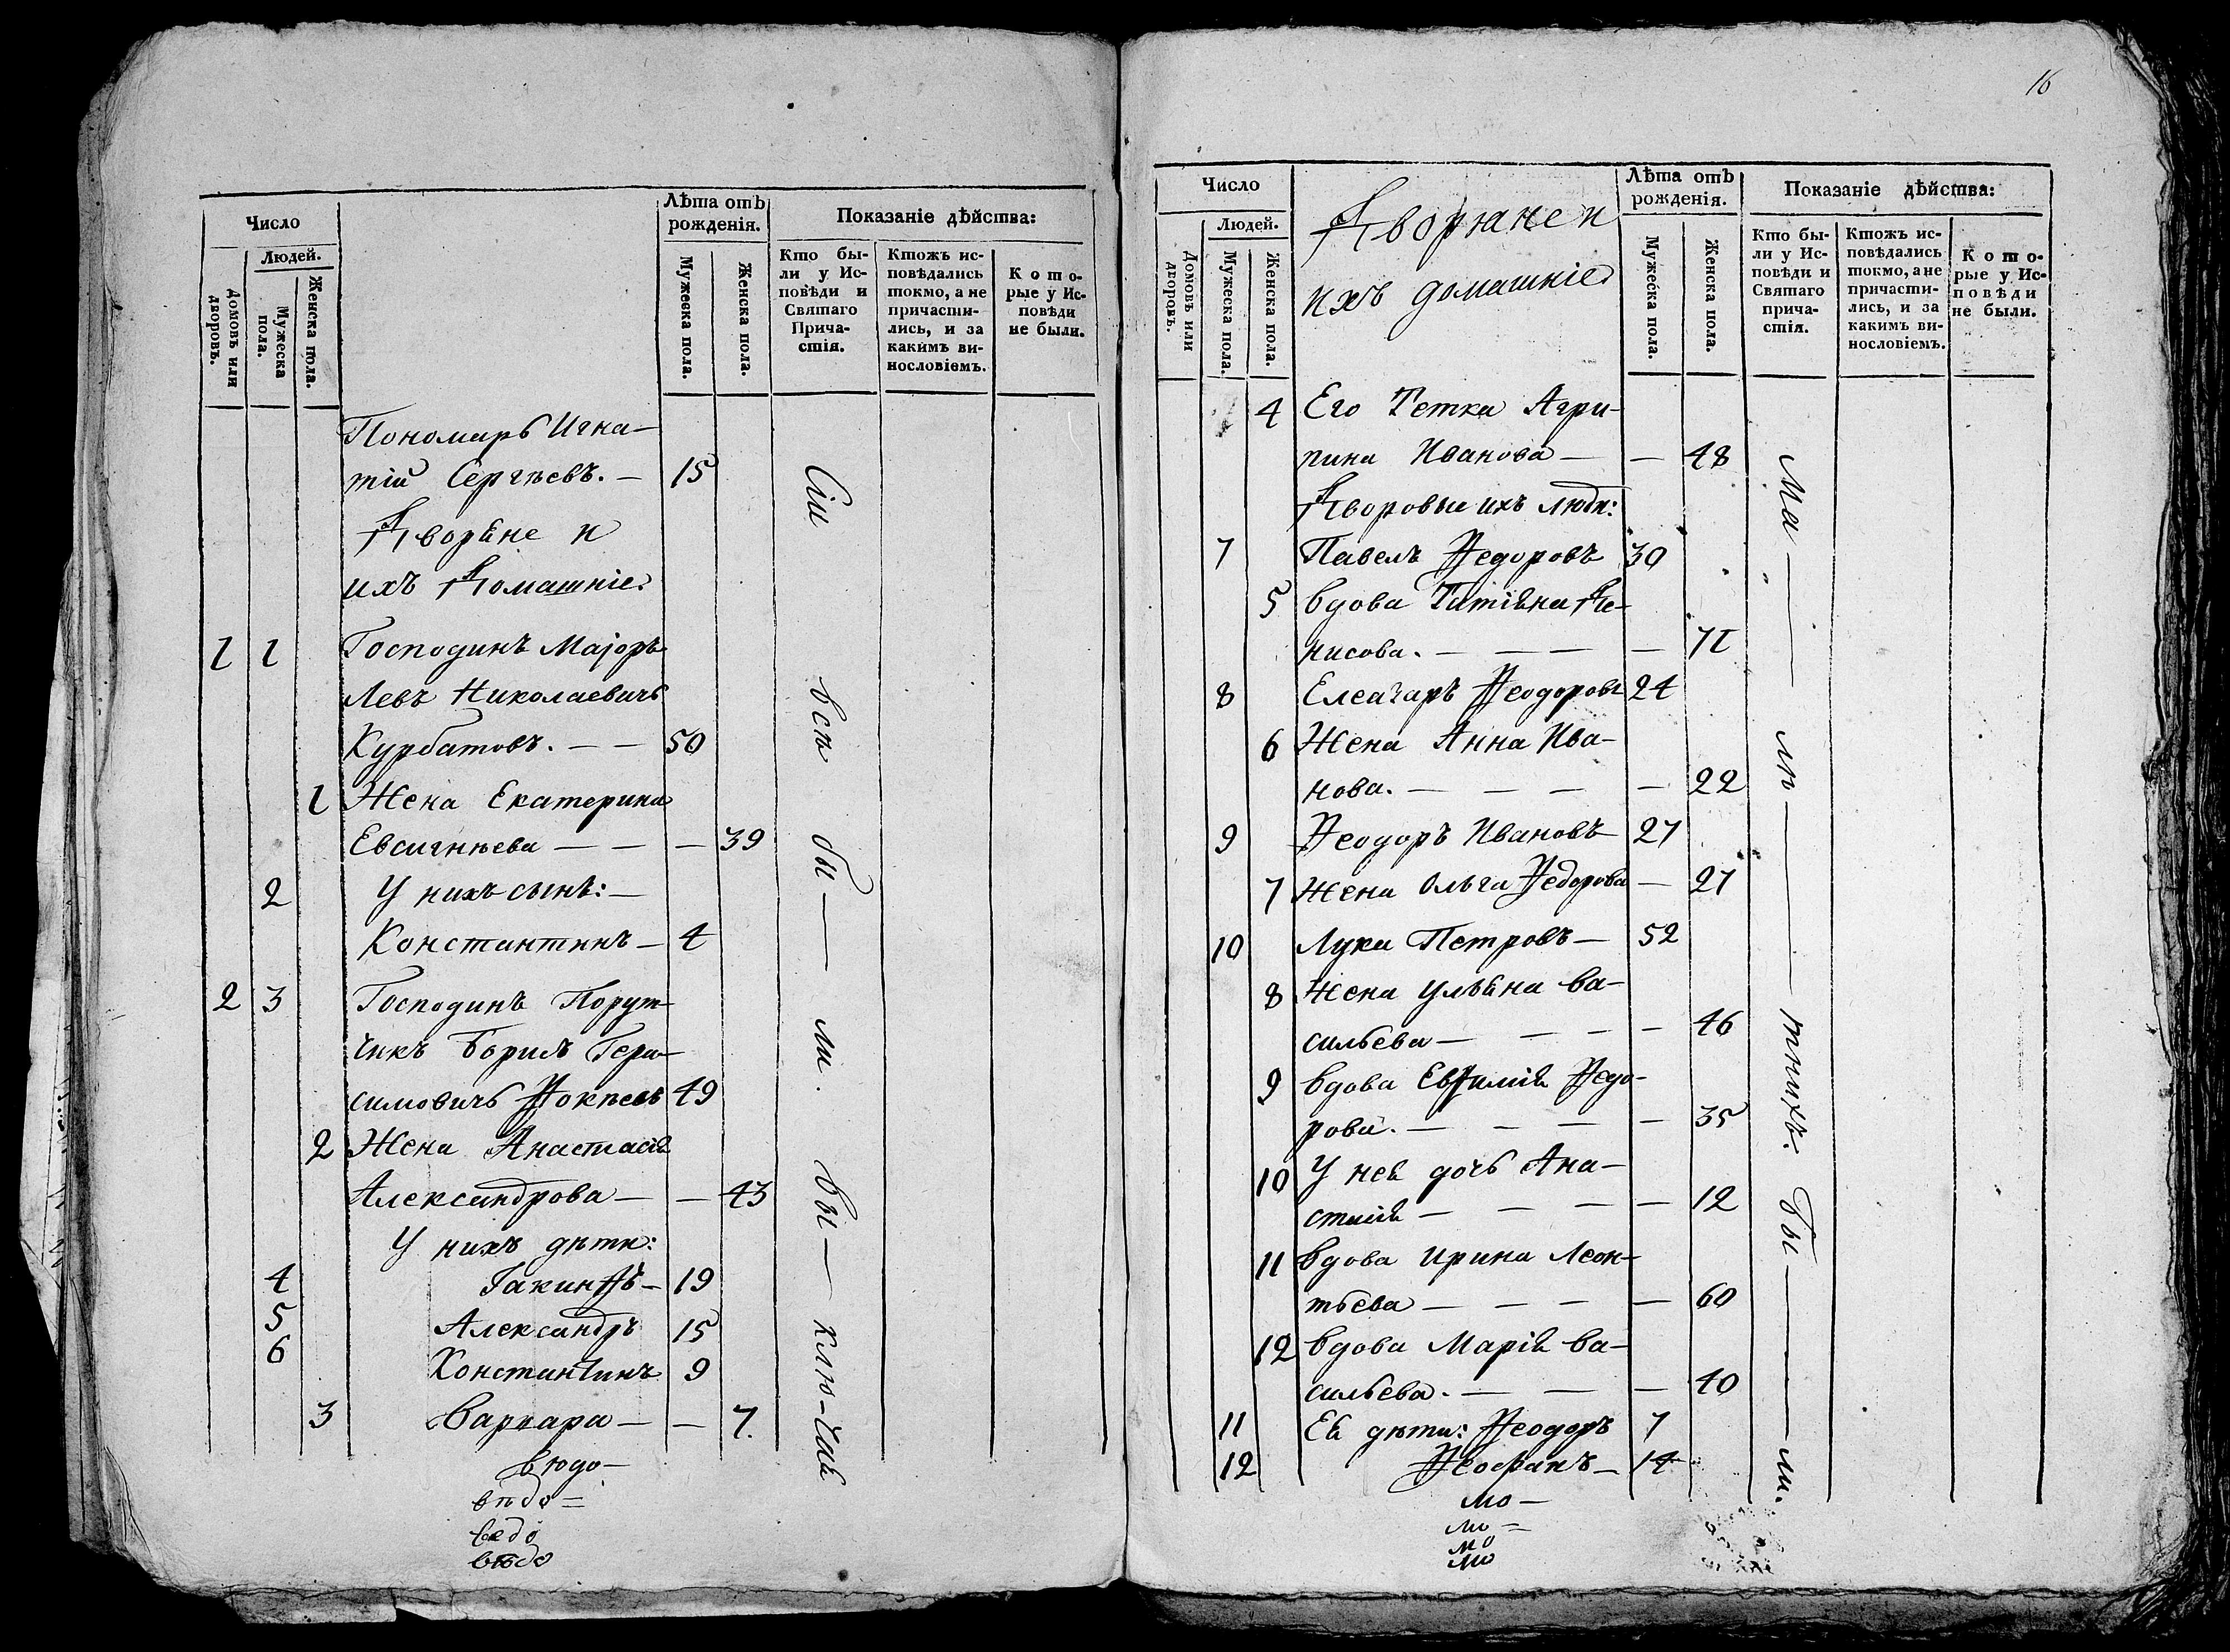 Число
Людей.
Домовъ или дворовъ.
Мужеска пола.
Женска пола.
Лѣта отъ
рожденія.
Мужеска пола.
Женска пола.
Показаніе дѣйства:
Кто бы-
ли у Ис-
повѣди и
Святаго
Прича-
стія.
Ктожъ ис-
повѣдались
токмо, а не
причасти-
лись, и за
какимъ ви-
нословіемъ.
Кото-
рые у Ис-
повѣди
не были.
Пономарь Игна-
тій Сергѣевъ. — 15
Дворяне и
ихъ Домашніе
1 1 Господинъ Маіоръ
Левъ Николаевичь
Курбатовъ. — — 50
1 Жена Екатерина
Евсигнѣева — — — 39
2 У нихъ сынъ: —
Константинъ — 4
2 3 Господинъ Порут-
чикъ Борисъ Гера-
симовичь Ѳокѣевъ 49
2 Жена Анастасія
Александрова — — 43
У нихъ дѣти:
4 Іакинѳъ — 19
5 Александръ 15
6 Константинъ 9
3 Варвара — — 7.
Сіи всѣ бы — ли. вы — клю - чая
вѣдо
16
Число
Людей.
Домовъ или дворовъ.
Мужеска пола.
Женска пола.
Дворяне и
ихъ домашніе
Лѣта отъ
рожденія.
Мужеска пола.
Женска пола.
Показаніе дѣйства:
Кто бы-
ли у Ис-
повѣди и
Святаго
прича-
стія.
Ктожъ ис-
повѣдались
токмо, а не
причасти-
лись, и за
какимъ ви-
нословіемъ.
Кото-
рые у Ис-
повѣди
не были.
4 Его Тетка Агри-
пина Иванова — — 48
Дворовые ихъ люди:
7 Павелъ Ѳедоровъ 30
5 Вдова Татіяна Де-
нисова. — — — — 71
8 Елеазаръ Ѳеодоровъ 24
6 Жена Анна Ива-
нова. — — — — 22
9 Ѳеодоръ Ивановъ 27
7 Жена Ольга Ѳедорова — 27
10 Лука Петровъ — 52
8 Жена Ульяна Ва-
сильева — — — — 46
9 Вдова Евѳимія Ѳедо-
рова. — — — — 35
10 У нея дочь Ана-
стасія — — — — 12
11 Вдова Ирина Леон-
тьева — — — — 60
12 Вдова Марія Ва-
сильева. — — — 40
11 Ея дѣти: Ѳеодоръ 7
12 Ѳеофанъ — 14
Ма — лѣ — тнихъ. бы — ли.
мо —
мо =
мо
мо